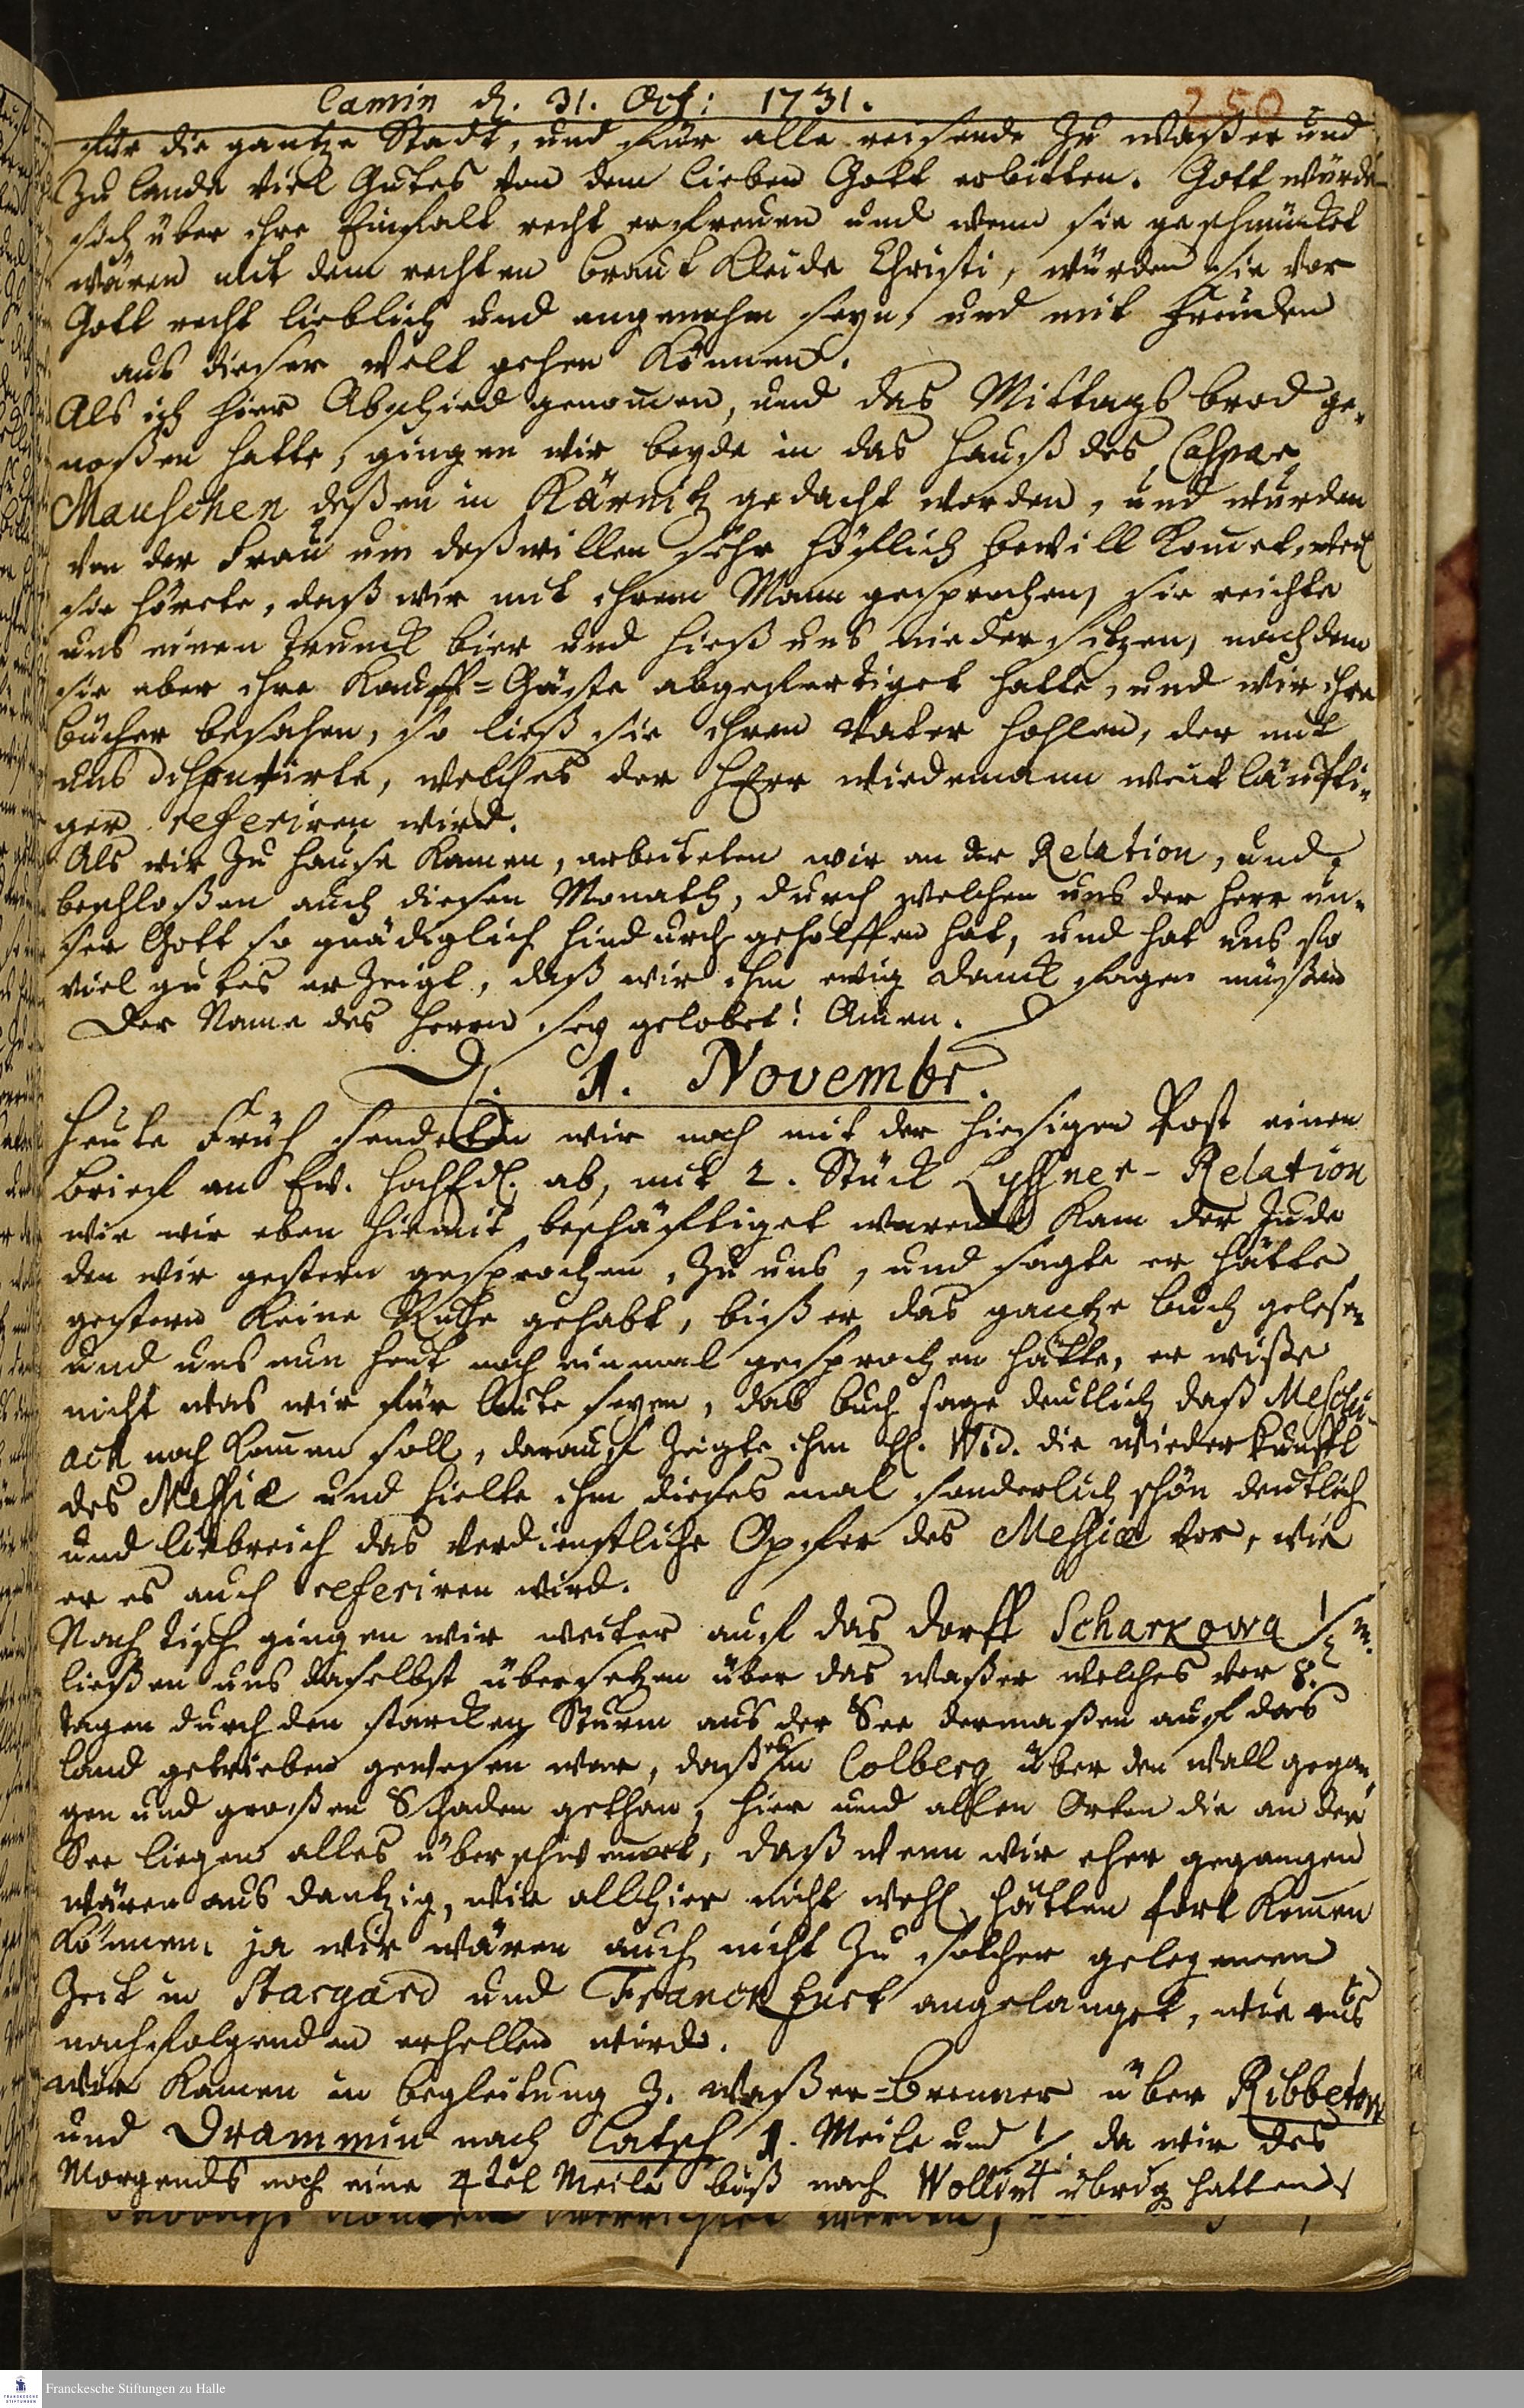 Camin d. 31. Oct: 1731.
250
für die gantze Stadt, und für alle reisende zu waßer und
zu lande viel Gutes von dem lieben Gott erbitten. Gott würde
sich über ihre Einfalt recht erfreuen und wenn sie geschmücket
wären mit dem rechten braut Kleide Christi, würden sie vor
Gott recht lieblich und angenehm seyn, und mit freuden
aus dieser welt gehen können.
Als ich hier Abschied genom̄en, und das Mittags brod ge-
noßen hatte, gingen wir beyde in das Hauß des Caspar
Mauschen deßen in Kärnitz gedacht worden, und wurden
von der Frau um deßwillen sehr höflich bewill kom̄et, weil
sie hörete, daß wir mit ihrem Mann gesprochen, sie reichte
uns einen trunck bier und hieß uns niedersitzen, nachdem
sie aber ihre Kauff-Gäste abgefertiget hatte, und wir ihre
bücher besahen, so ließ sie ihren Vater hohlen, der mit
uns disputirte, welches der HErr Wiedemann weitläuffti-
ger referiren wird.
Als wir zu hause kamen, arbeiteten wir an der Relation, und
beschloßen auch diesen Monath, durch welchen uns der Herr un-
ser Gott so gnädiglich hindurch geholffen hat, und hat uns so
viel gutes erzeigt, daß wir ihm ewig danck sagen müßen
Der Name des Herrn sey gelobet! Amen.
D. 1. Novembr.
Heute Früh sendeten wir noch mit der hiesigen Post einen
brief an Ew. HochEdl. ab, mit 2. Stück Lyssner-Relation
wie wir eben hiemit beschäftiget waren kam der Jude
den wir gestern gesprochen, zu uns, und sagte er hätte
gestern keine Ruhe gehabt, biß er das gantze buch gelesen
und uns nun heut noch einmal gesprochen hätte, er wiße
nicht was wir für leute seyen, das buch sage deutlich daß Meschi-
ach noch kom̄en soll, darauf zeigte ihm H. Wid. die wiederkunfft
des Messiæ und hielte ihm dieses mal sonderlich schön deutlich
und liebreich das verdienstliche Opfer des Messiæ vor, wie
er es auch referiren wird.
Nach tisch gingen wir weiter auf das dorff Scharkowa 1/2 m.
ließen uns daselbst übersetzen über das waßer welches vor 8.
tagen durch den starcken Sturm aus der See dermaßen auf das
land getrieben gewesen war, daß es in Colberg über den wall gegan-
gen und großen Schaden gethan, hier und allen Orten die an der
See liegen alles überschwem̄et, daß wenn wir eher gegangen
wären aus dantzig, wir allhier nicht wohl hätten fort kom̄en
können, ja wir wären auch nicht zu solcher gelegenen
Zeit in Stargard und Franckfurt angelanget, wie aus
nachfolgenden erhellen wird.
Wir kamen in begleitung z. waßer-brenner über Ribbetow
und Drammin nach Latsch 1. Meile und 1/4. da wir des
Morgends noch eine 4tel Meile biß nach Wollin übrig hatten.
Franckesche Stiftungen zu Halle